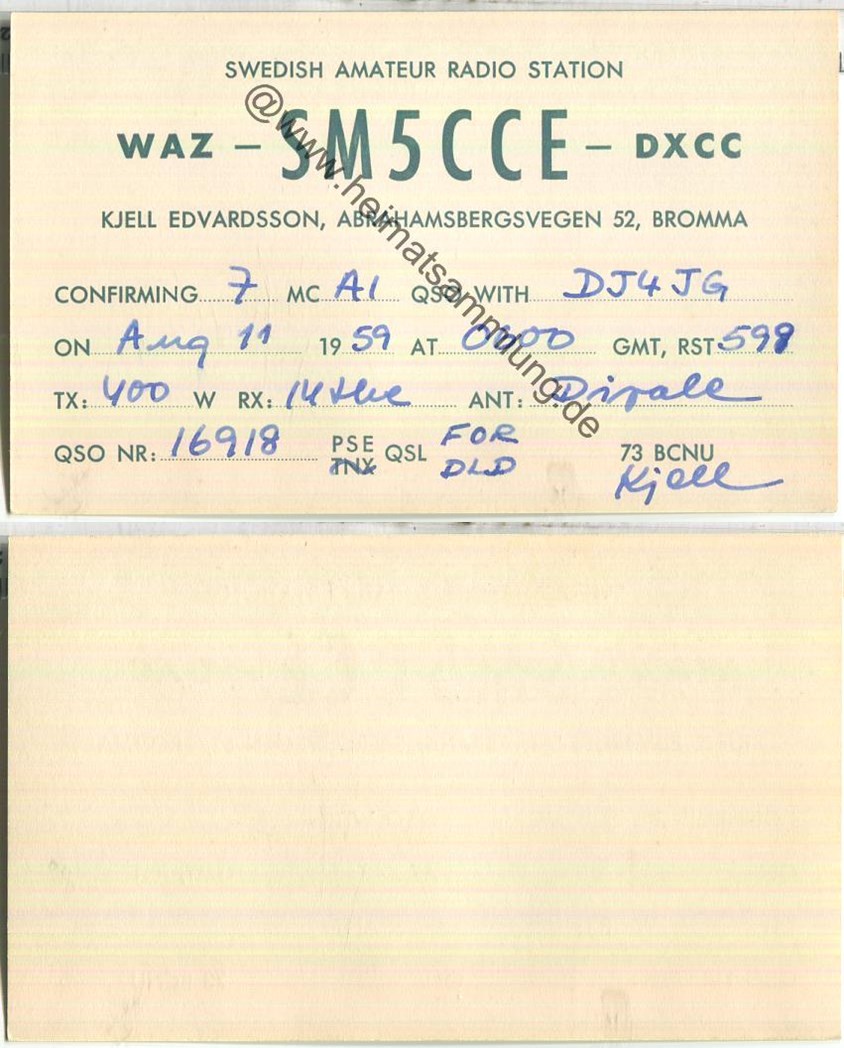 SWEDISH AMATEUR RADIO STATION
WAZ – SM5CCE – DXCC
KJELL EDVARDSSON, ABRAHAMSBERGSVEGEN 52, BROMMA
CONFIRMING 7 MC A1 QSO WITH DJ4JG
ON Aug 11 1959 AT 0600 GMT, RST 599
TX: 400 W RX: 14 tube ANT: Dipole
QSO NR: 16918 PSE TNX QSL FOR DLD 73 BCNU
Kjell
@www.heimatsammlung.de